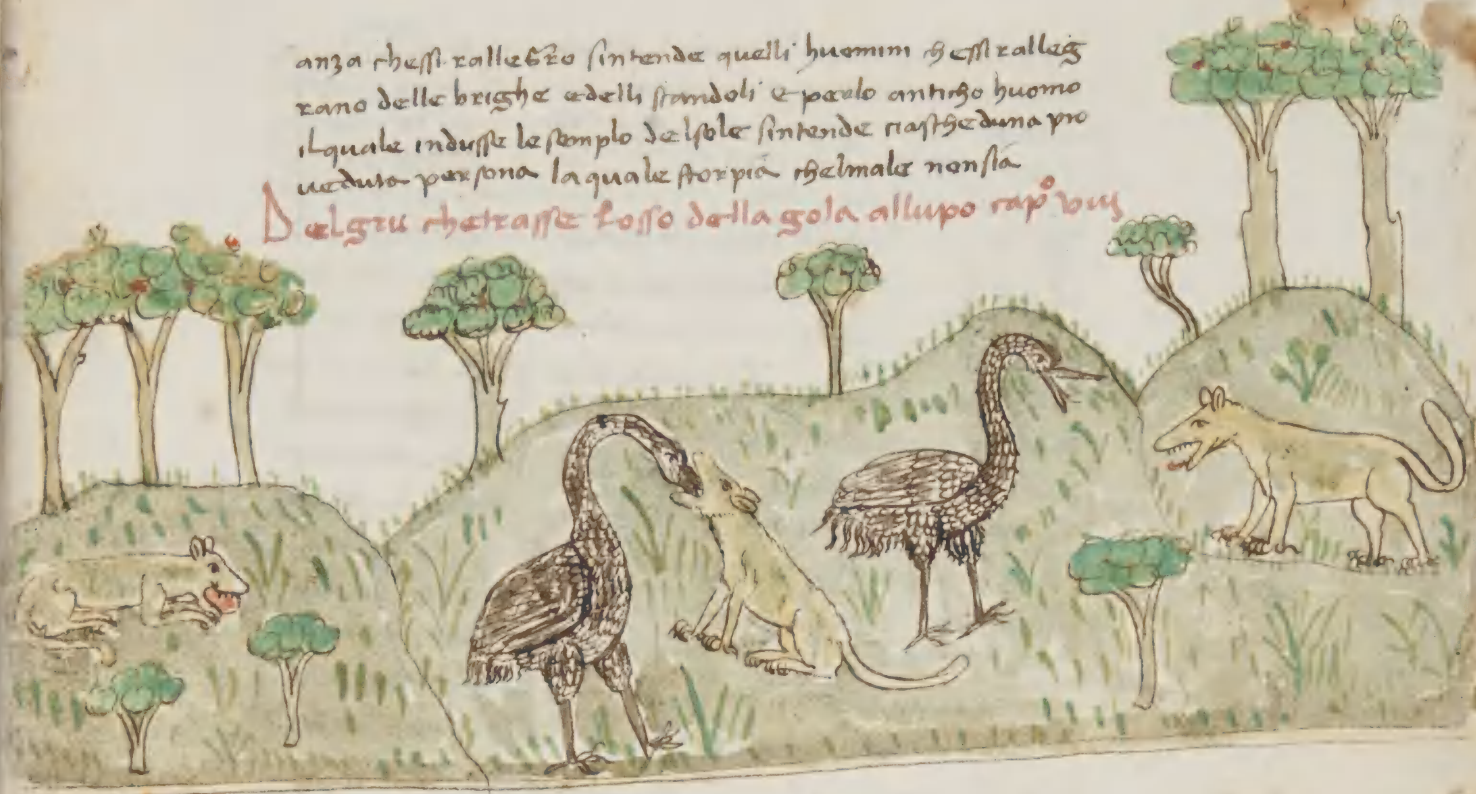 anza chessi rallegro sintende quelli huomini chessi ralleg
rano delle brighe edelli scandoli e perlo anticho huomo
ilquale indusse lesemplo delsole sintende ciascheduna pro
veduta persona laquale storpia chelmale nonsia
Delgru chetrasse losso della gola allupo capº viij